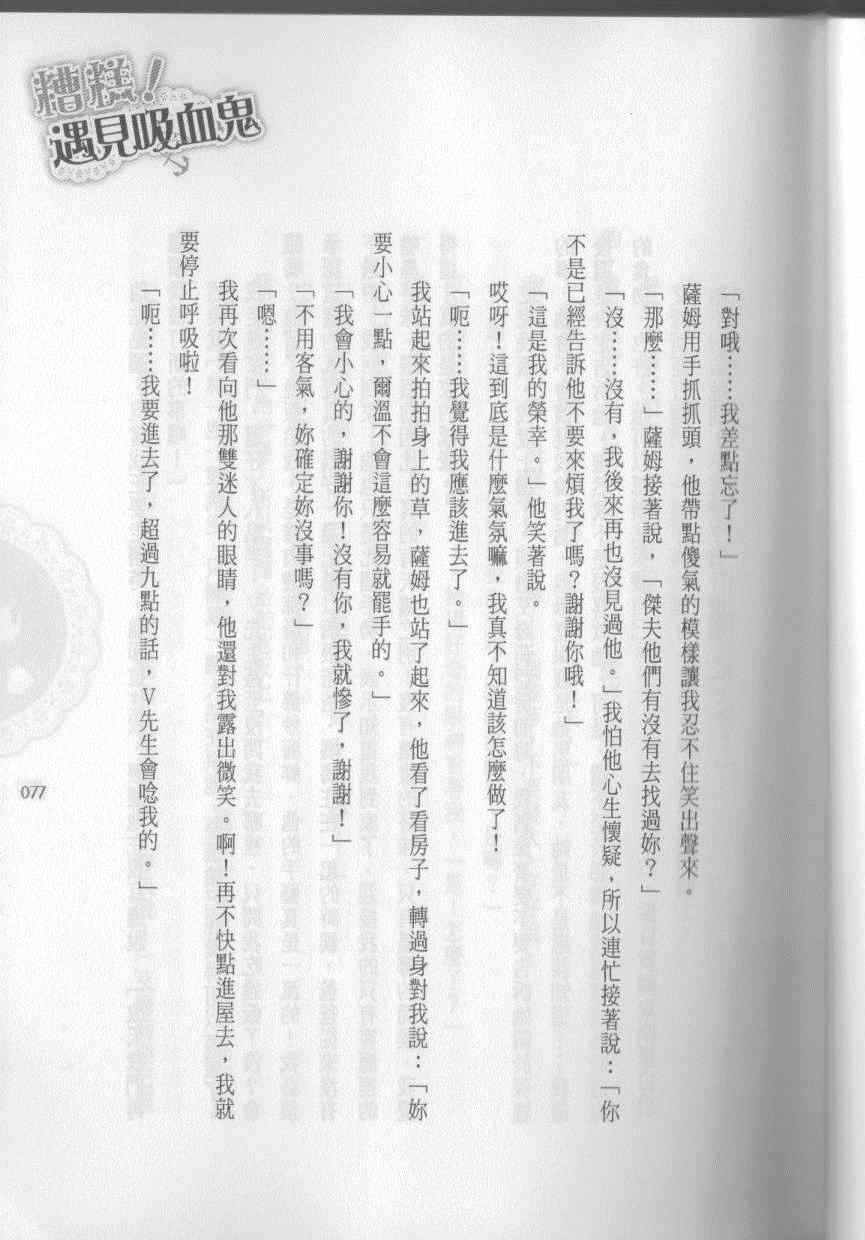 糟糕！
遇見吸血鬼
「對哦……我差點忘了！」
薩姆用手抓抓頭，他帶點傻氣的模樣讓我忍不住笑出聲來。
「那麼……」薩姆接著說，「傑夫他們有沒有去找過妳？」
「沒……沒有，我後來再也沒見過他。」我怕他心生懷疑，所以連忙接著說：「你
不是已經告訴他不要來煩我了嗎？謝謝你哦！」
「這是我的榮幸。」他笑著說。
哎呀！這到底是什麼氣氛嘛，我真不知道該怎麼做了！
「呃……我覺得我應該進去了。」
我站起來拍拍身上的草，薩姆也站了起來，他看了看房子，轉過身對我說：「妳
要小心一點，爾溫不會這麼容易就罷手的。」
「我會小心的，謝謝你！沒有你，我就慘了，謝謝！」
「不用客氣，妳確定妳沒事嗎？」
「嗯……」
我再次看向他那雙迷人的眼睛，他還對我露出微笑。啊！再不快點進屋去，我就
要停止呼吸啦！
「呃……我要進去了，超過九點的話，V先生會唸我的。」
077